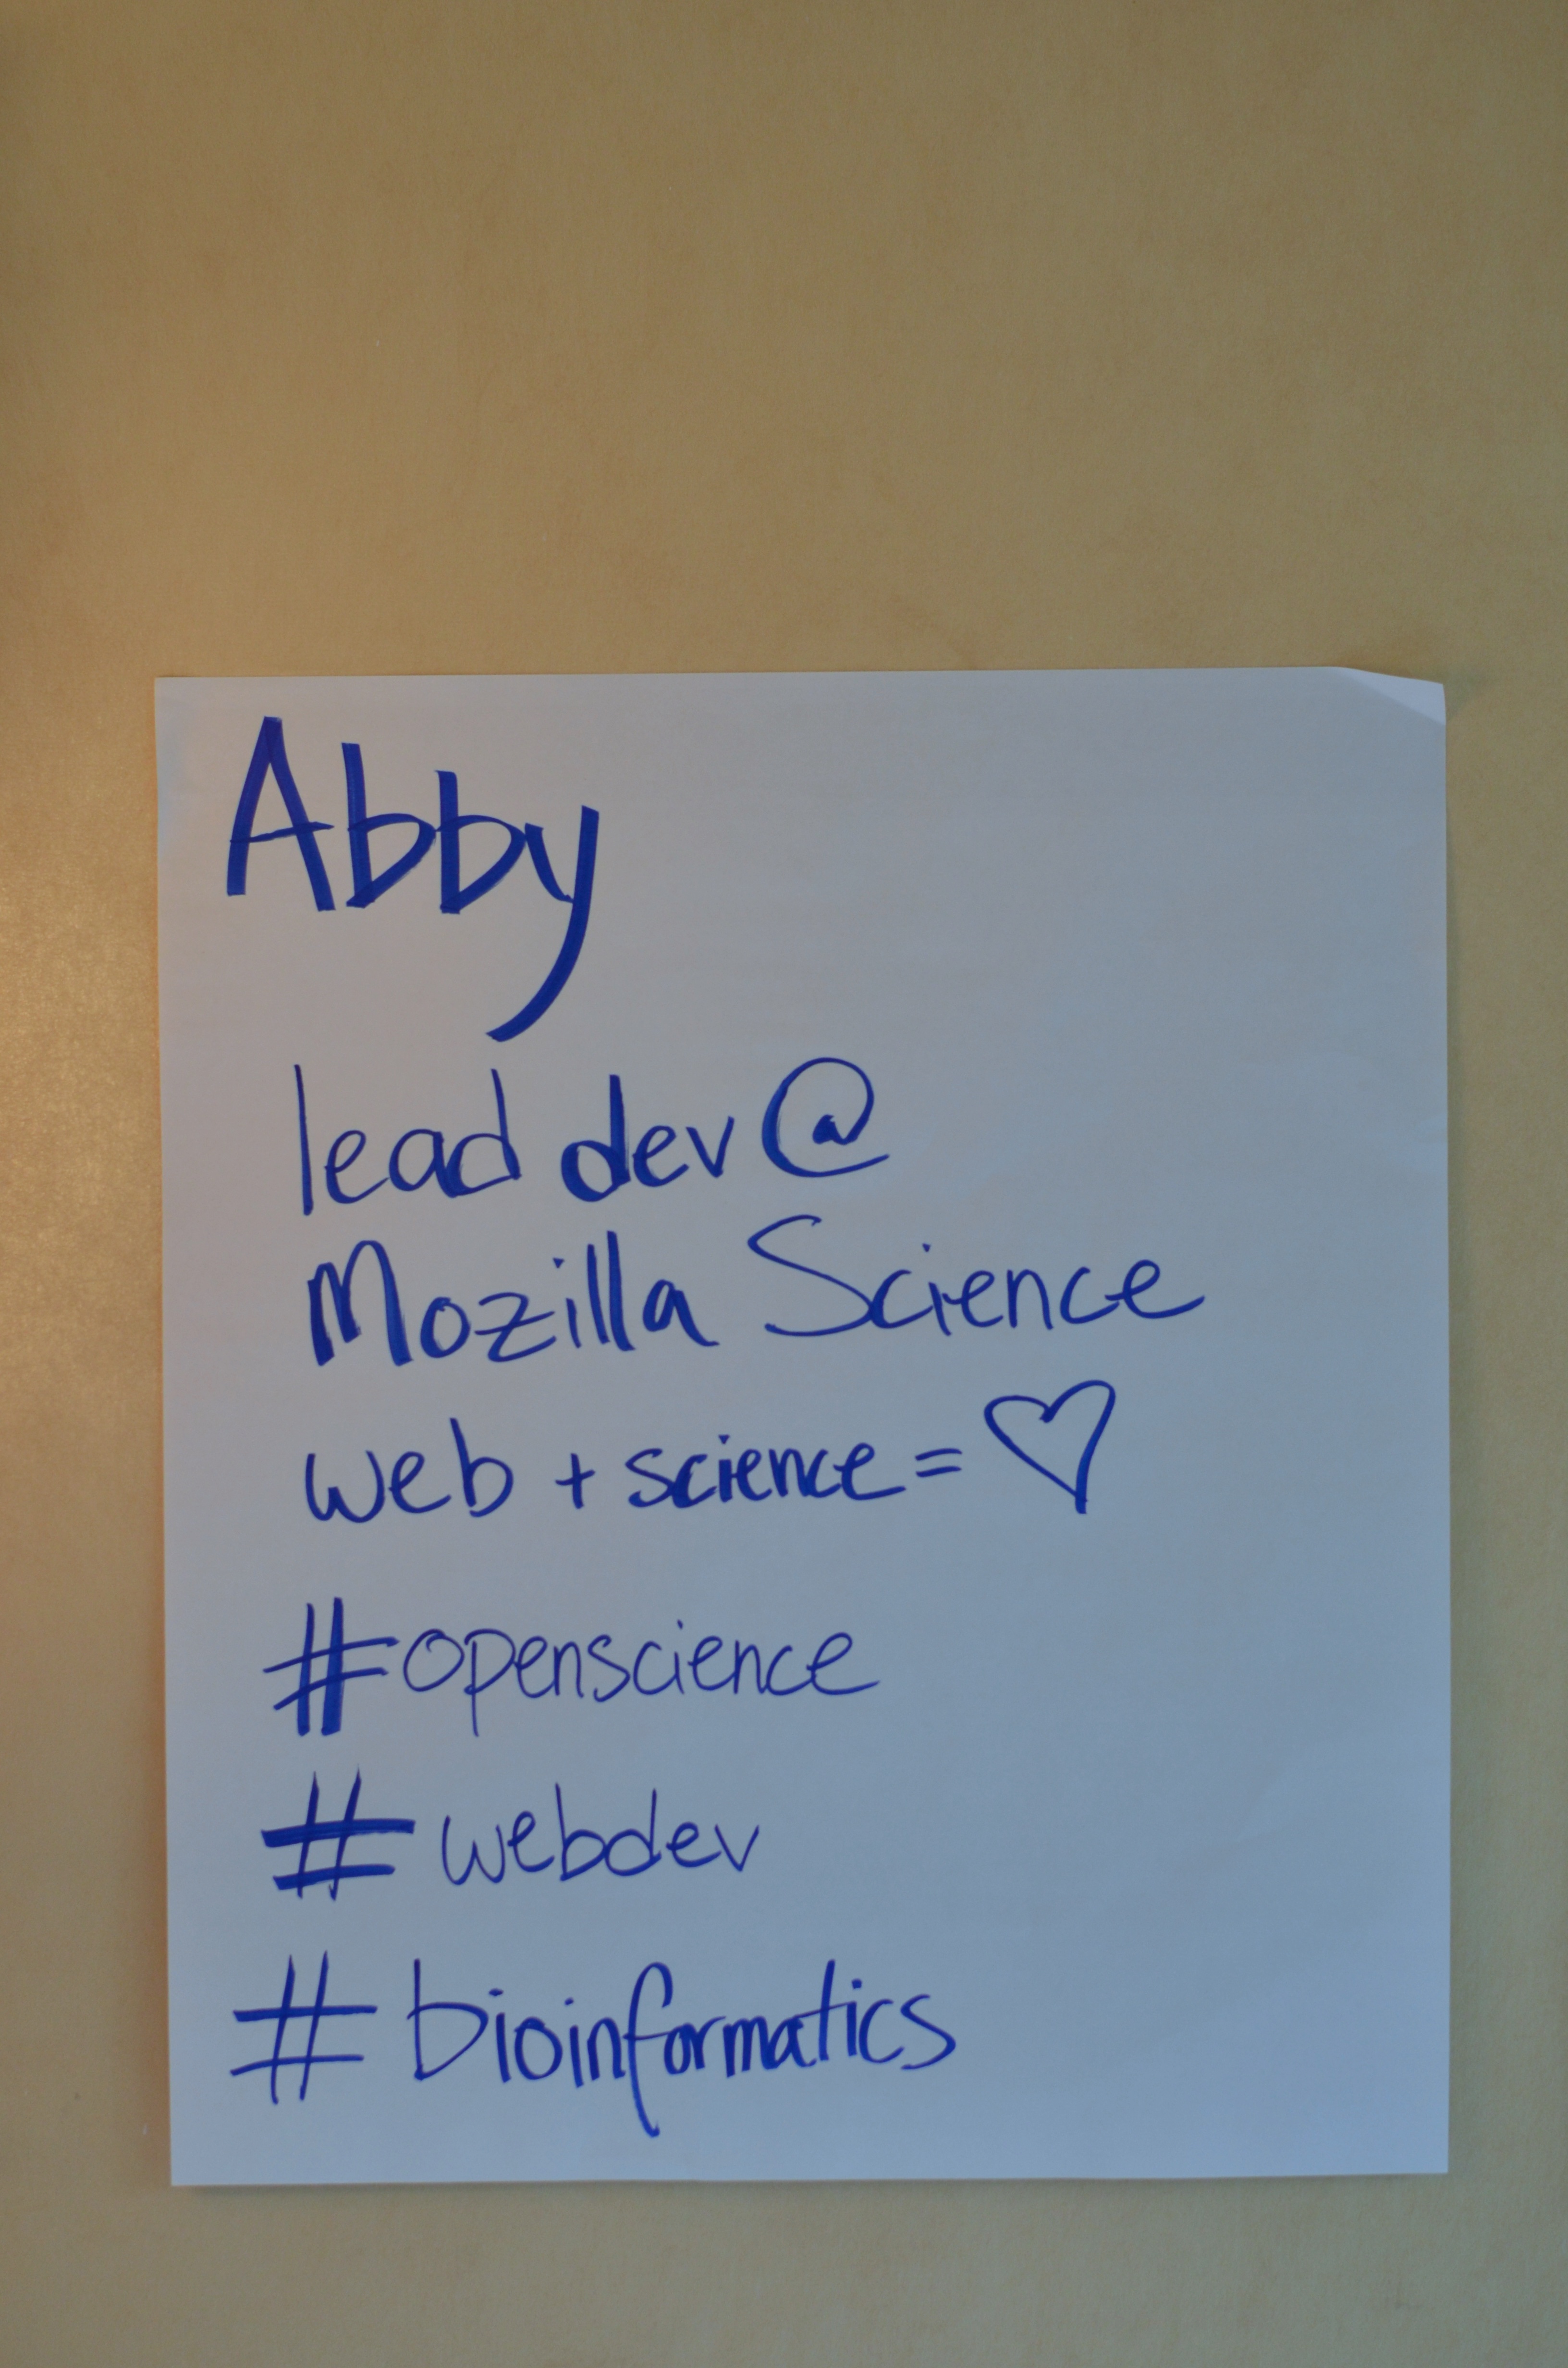 Abby
lead dev @
Mozilla Science
web + science = ♡
#openscience
#webdev
#bioinformatics